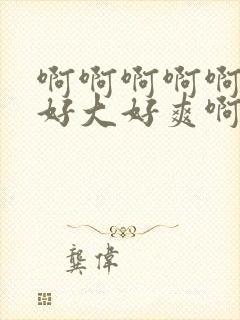 啊啊啊啊啊
好大好爽啊
龔偉